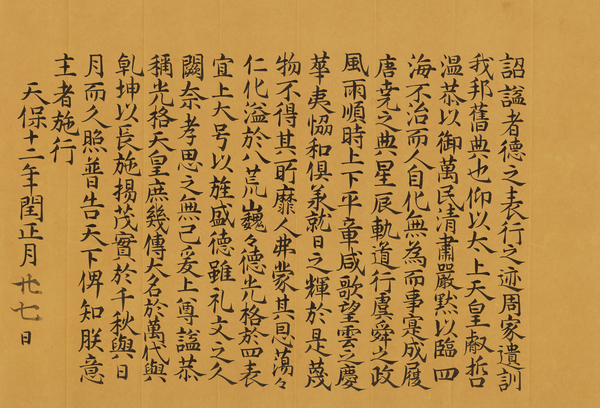 詔謚者德之表行之迹周家遺訓
我邦舊典也仰以太上天皇叡哲
温恭以御萬民清肅嚴默以臨四
海不治而人自化無為而事寔成履
唐堯之典星辰軌道行虞舜之政
風雨順時上下平章咸歌望雲之慶
華夷恊和俱羕就日之輝於是蔑
物不得其所靡人弗蒙其恩蕩々
仁化溢於八荒巍々德光格於四表
宜上大号以旌盛德雖礼文之久
闕奈孝思之無已爰上尊謚恭
稱光格天皇庶幾傳大名於萬代與
乹坤以長施揚茂實於千秋與日
月而久照普告天下俾知朕意
主者施行
天保十二年閏正月廿七日